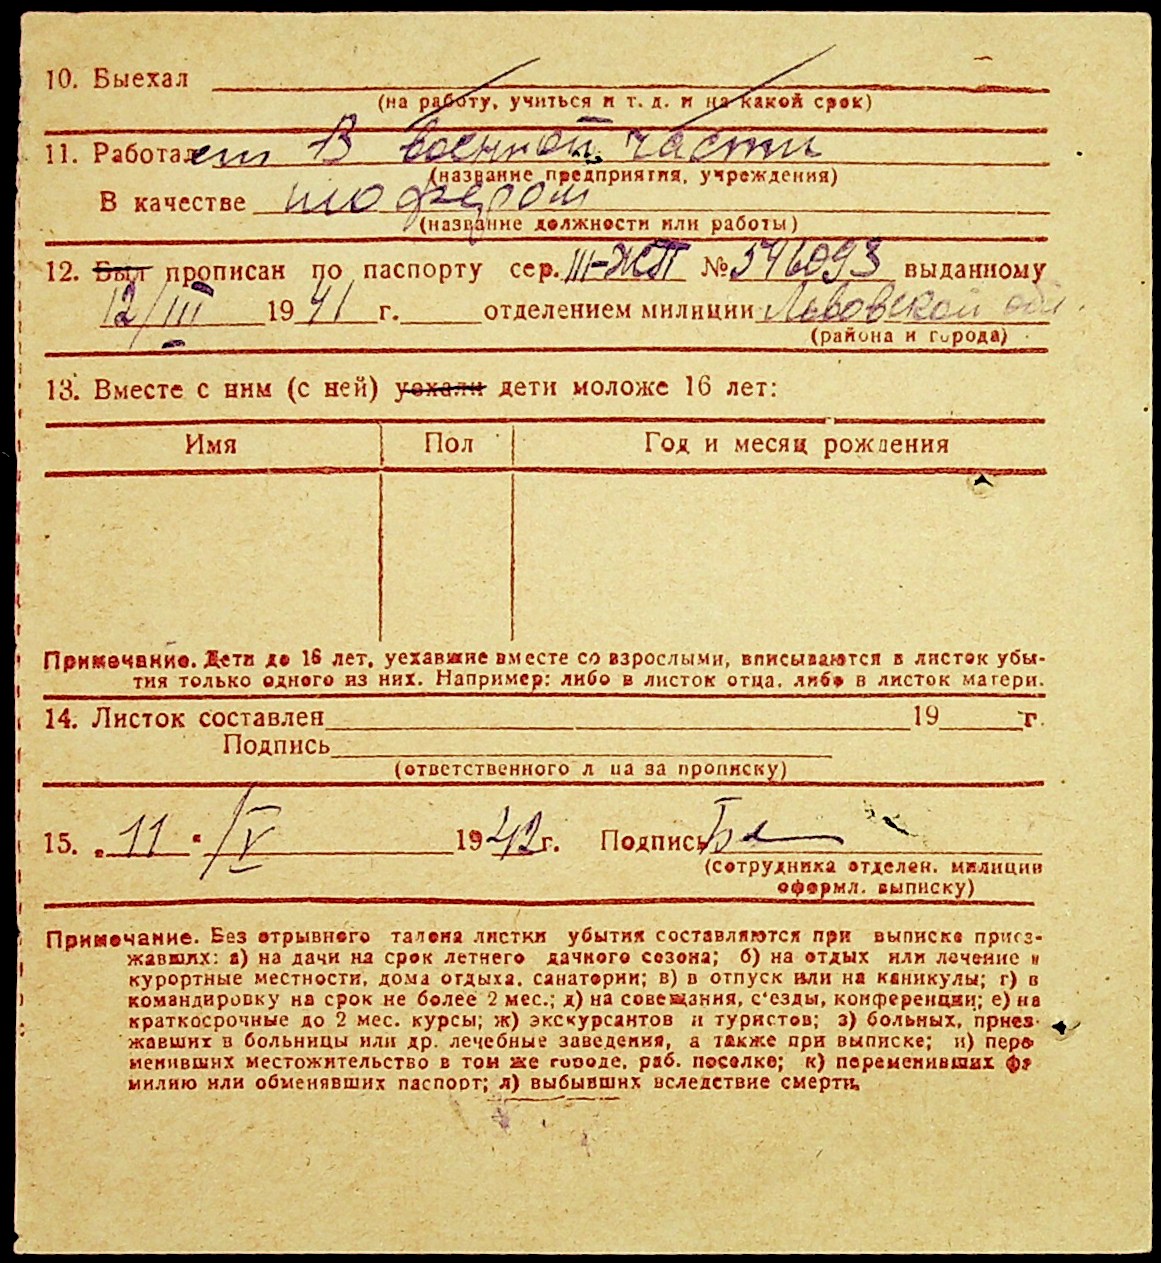 10. Выехал
(на работу, учиться и т. д. и на какой срок)
11. Работает в военной части
(название предприятия, учреждения)
В качестве шофером
(название должности или работы)
12. Был прописан по паспорту сер. III-ЖП № 546093 выданному
12/III 1941 г. отделением милиции Львовской обл.
(района и города)
13. Вместе с ним (с ней) уехали дети моложе 16 лет:
Имя Пол Год и месяц рождения
Примечание. Дети до 16 лет, уехавшие вместе со взрослыми, вписываются в листок убы-
тия только одного из них. Например: либо в листок отца, либо в листок матери.
14. Листок составлен 19 г.
Подпись
(ответственного лица за прописку)
15. „11“ /IV 1942 г. Подпись
(сотрудника отделен. милиции
оформл. выписку)
Примечание. Без отрывного талона листки убытия составляются при выписке приез-
жавших: а) на дачи на срок летнего дачного сезона; б) на отдых или лечение в
курортные местности, дома отдыха, санатории; в) в отпуск или на каникулы; г) в
командировку на срок не более 2 мес.; д) на совещания, с'езды, конференции; е) на
краткосрочные до 2 мес. курсы; ж) экскурсантов и туристов; з) больных, приез-
жавших в больницы или др. лечебные заведения, а также при выписке; и) пере
менивших местожительство в том же городе, раб. поселке; к) переменивших фа
милию или обменявших паспорт; л) выбывших вследствие смерти.